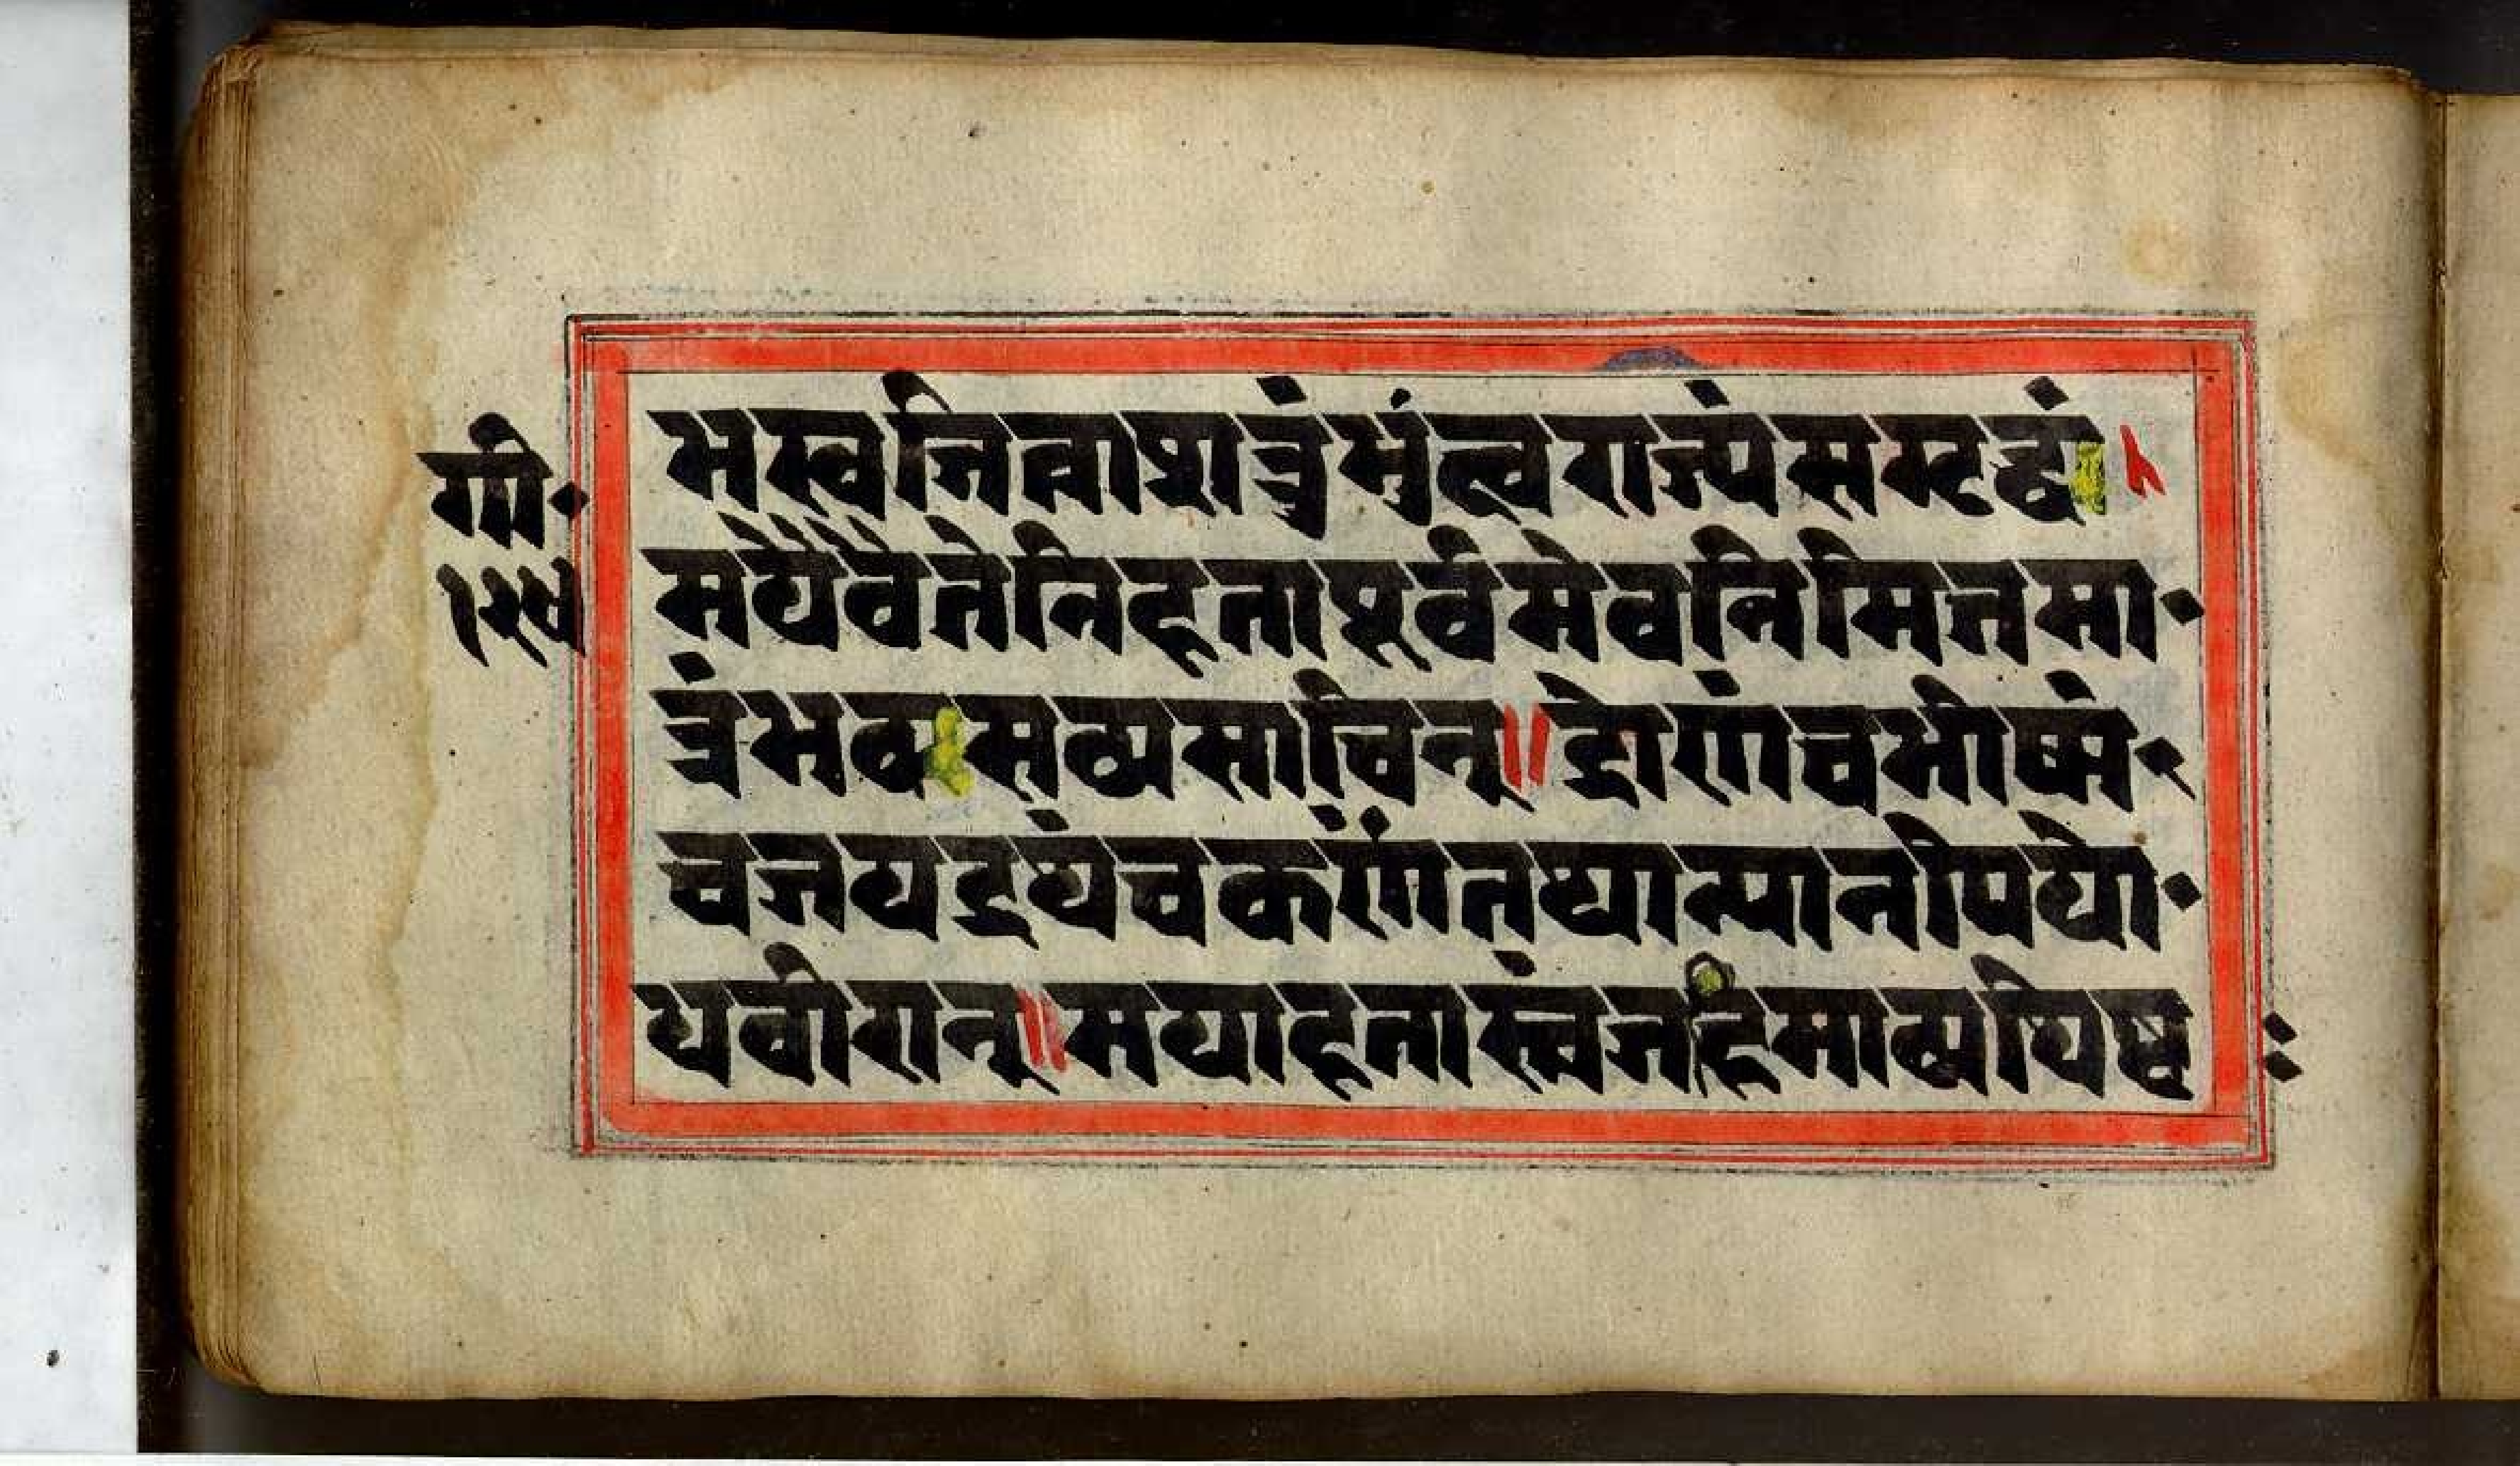 गी॰
१२५
भस्वजित्वाशत्रुंभुंत्त्वराज्यंसमृद्धं।
मयैवैतेनिहताःपूर्वमेवनिमित्तमा॰
त्रंभव्यसव्यसाचिन्॥द्रोणंचभीष्मं
चजयद्रथंचकर्णंतथान्यानपियो॰
धवीरान्॥मयाहतांस्त्वंजहिमाव्यथिष्ठः